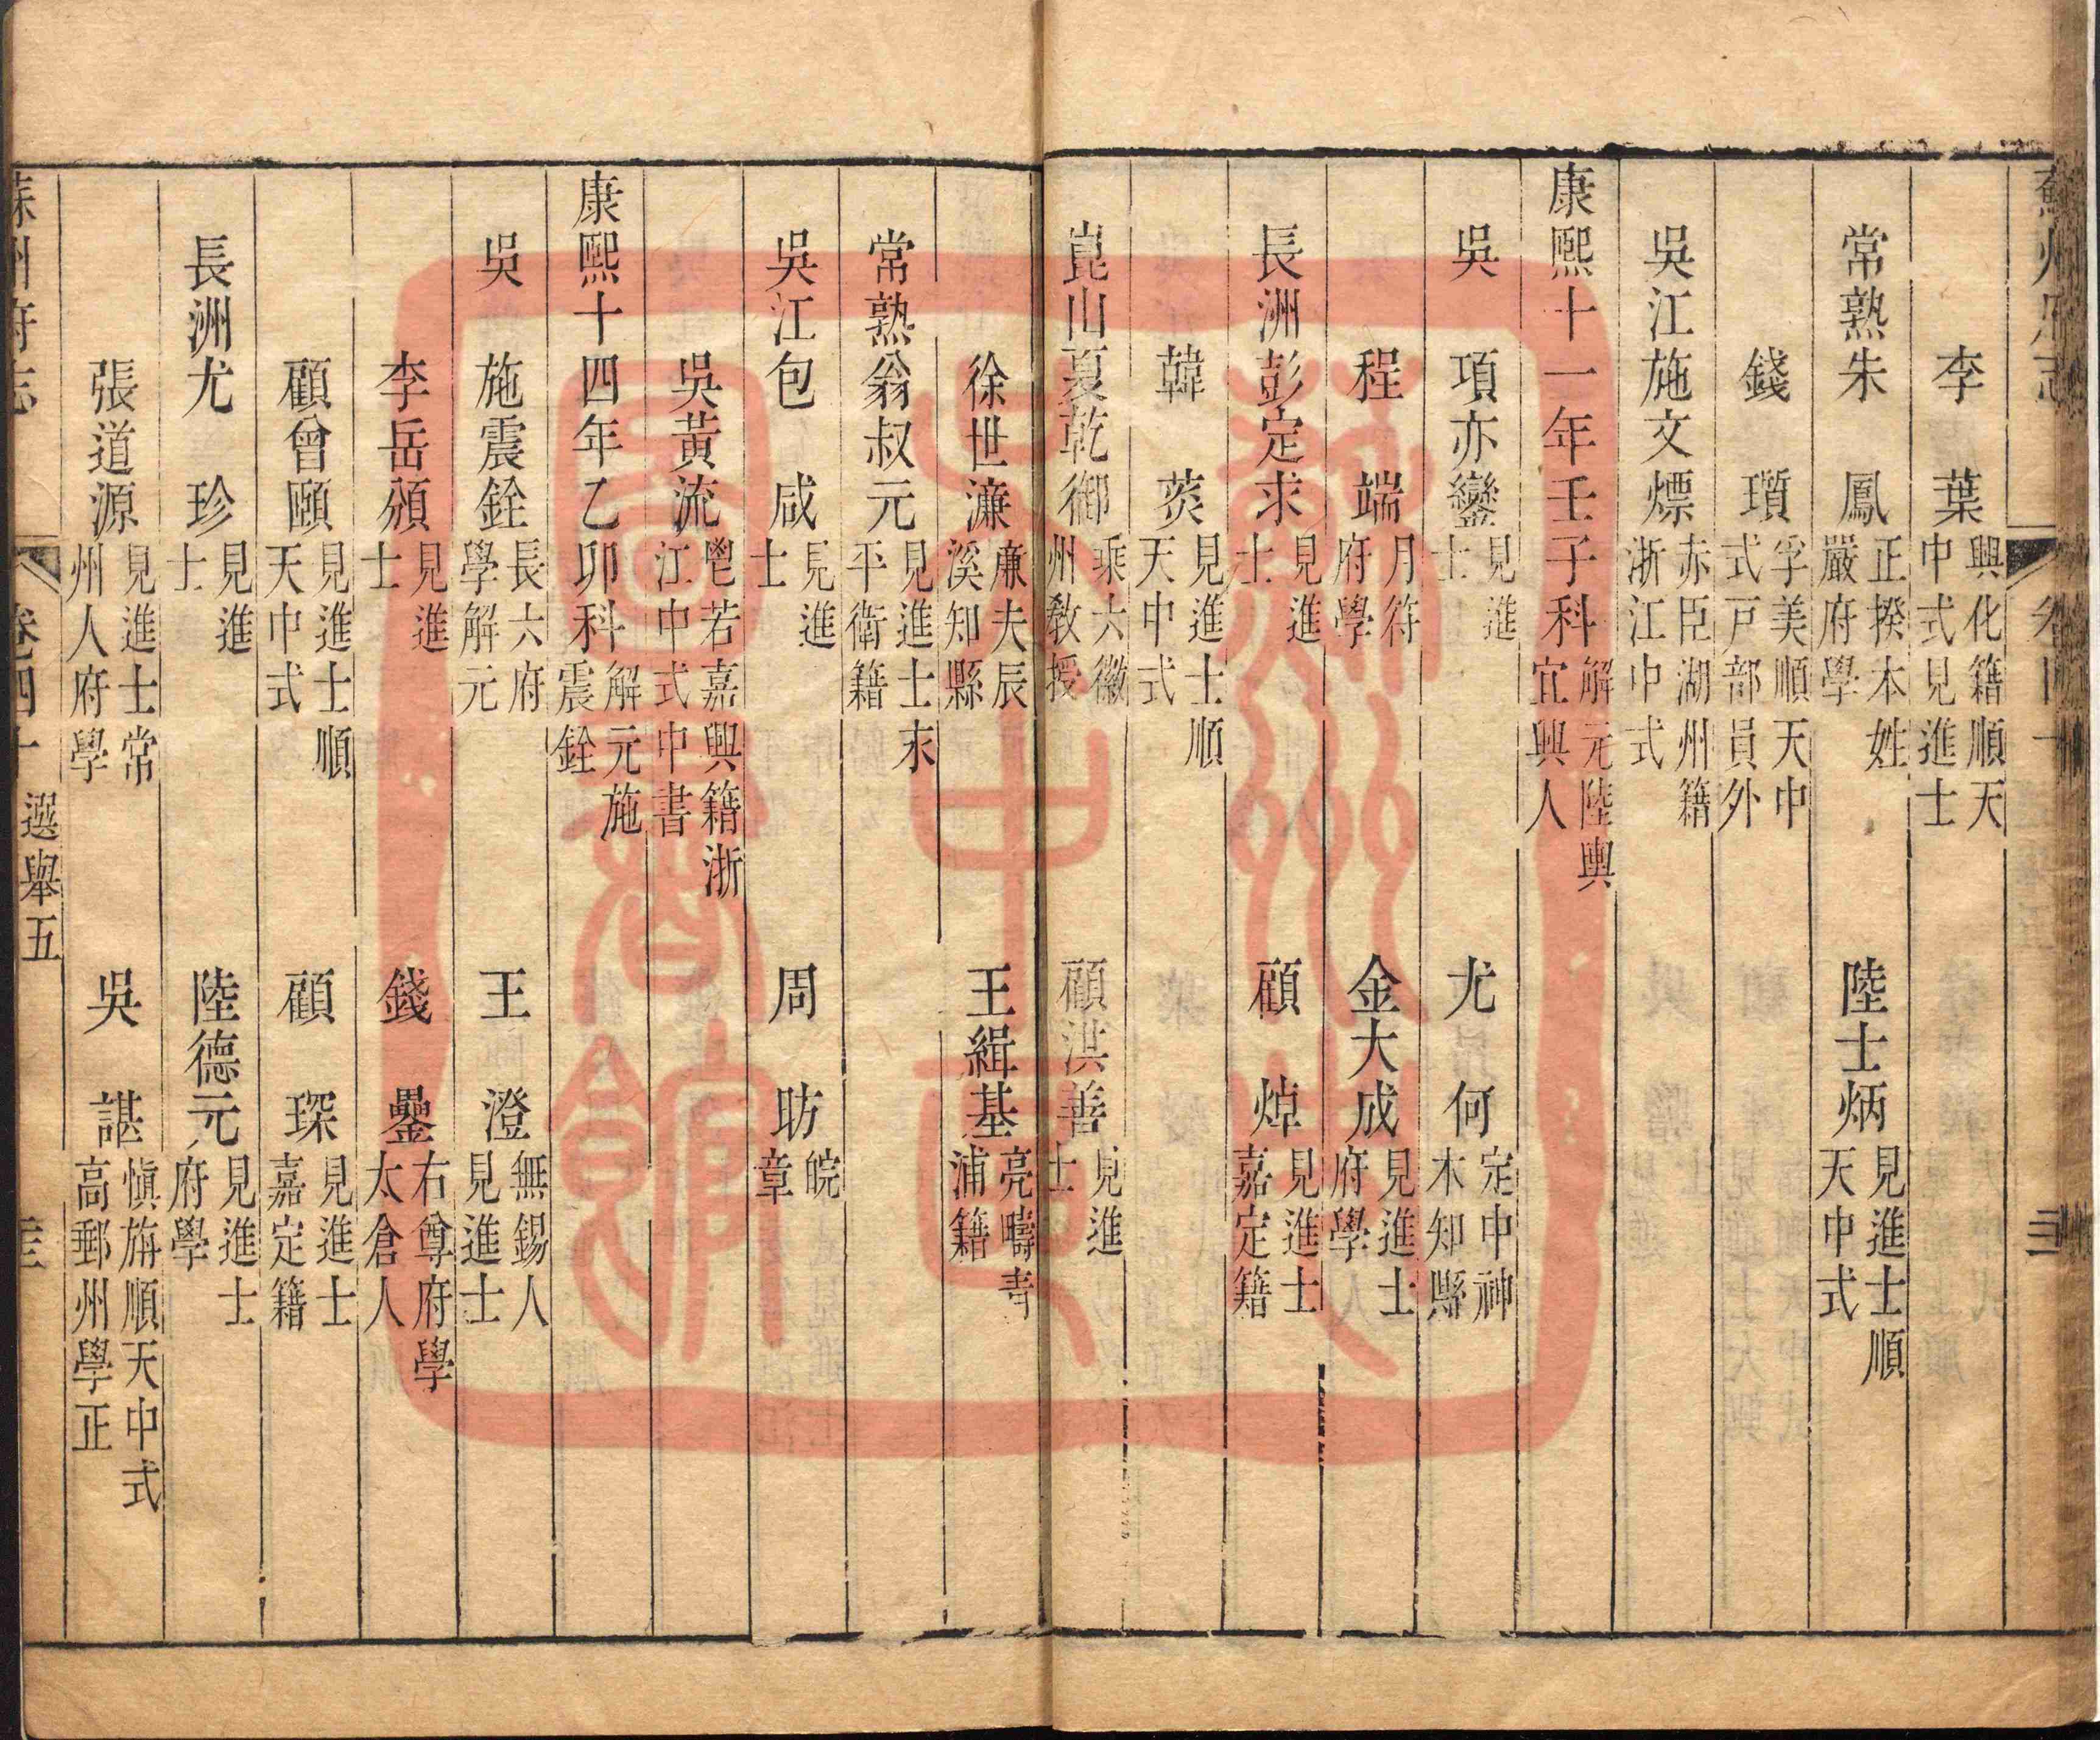 李　葉興化籍順天中式見進士
常熟朱　鳳正揆本姓嚴府學　陸士炳見進士順天中式
錢　瓚孚美順天中式戸部員外
吳江施文熛赤臣湖州籍浙江中式
康熙十一年壬子科解元陸輿宜興人
吳　項亦鑾見進士　尤　何定中神木知縣
程　端月符府學　金大成見進士府學
長洲彭定求見進士　顧　焯見進士嘉定籍
韓　菼見進士順天中式
崑山夏乾御乘六徽州敎授　顧洪善見進士
徐世濂廉夫辰溪知縣　王緝基亮疇青浦籍
常熟翁叔元見進士永平衛籍
吳江包　咸見進士　周　昉皖章
吳黃流鬯若嘉興籍浙江中式中書
康熙十四年乙卯科解元施震銓
吳　施震銓長六府學解元　王　澄無錫人見進士
李岳頒見進士　錢　曡右尊府學太倉人
顧曾頤見進士順天中式　顧　琛見進士嘉定籍
長洲尤　珍見進士　陸德元見進士府學
張道源見進士常州人府學　吳　諶愼旃順天中式高郵州學正
蘇州府志　卷四十　選舉五